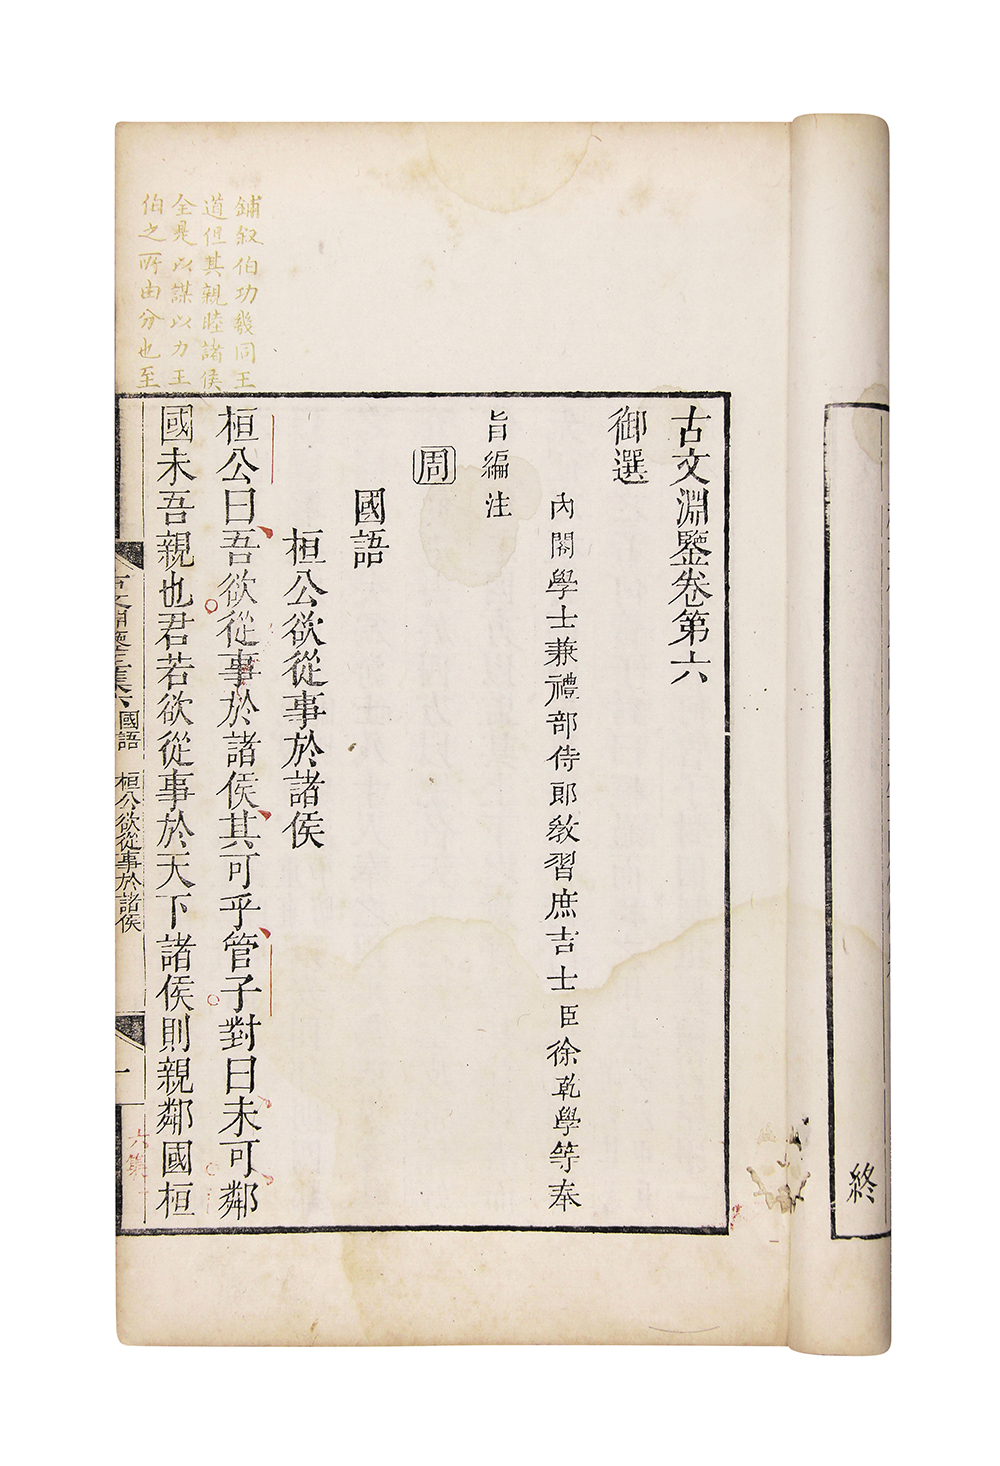 終
古文淵鑒卷第六
御選
內閣學士兼禮部侍郎教習庶吉士臣徐乾學等奉
旨編注
周
國語
桓公欲從事於諸侯
桓公曰吾欲從事於諸侯其可乎管子對曰未可鄰
國未吾親也君若欲從事於天下諸侯則親鄰國桓
鋪叙伯功幾同王
道但其親睦諸侯
全是以謀以力王
伯之所由分也至
國語
桓公欲從事於諸侯
一
六集